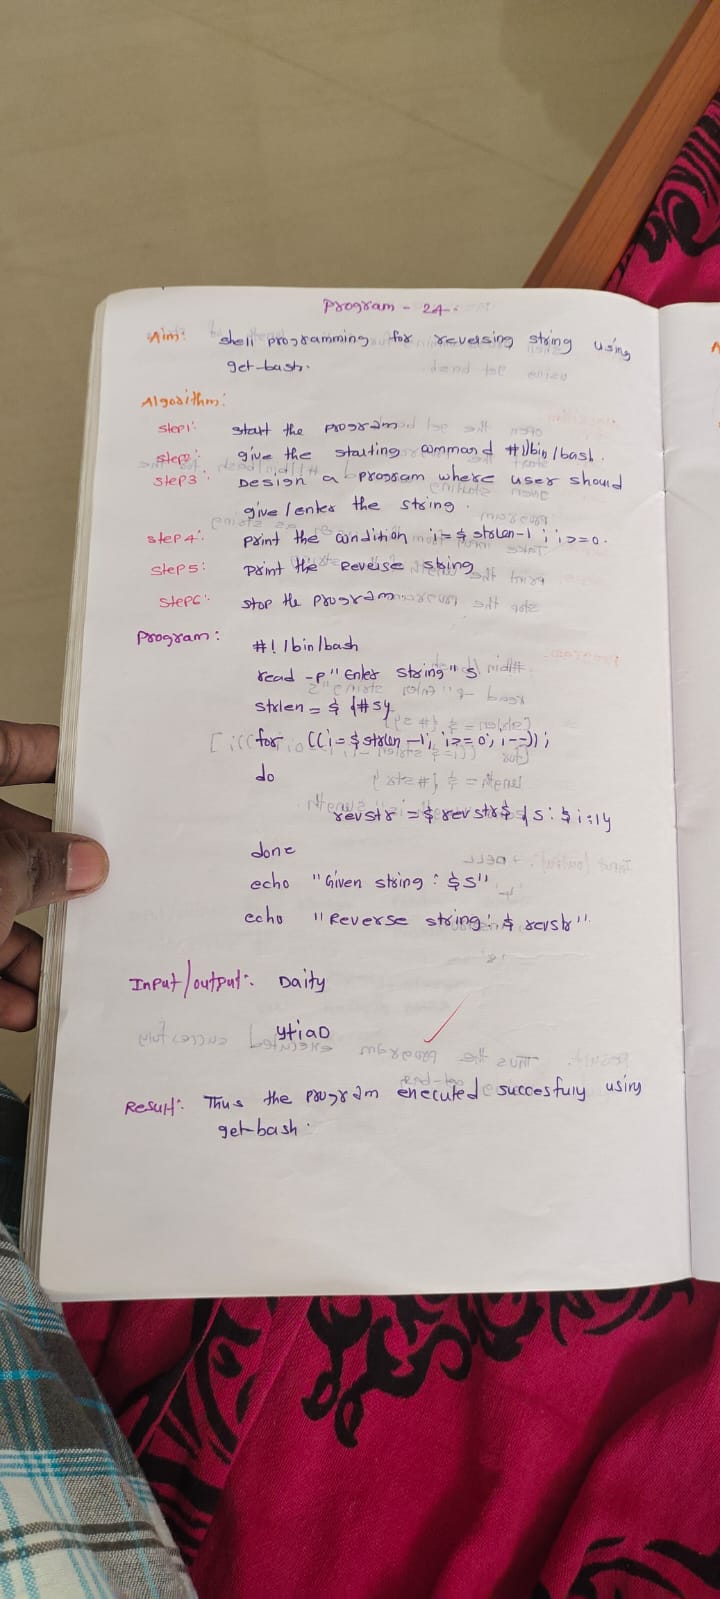 Program - 24.
Aim: shell programming for reversing string using
get-bash.
Algorithm:
step1: start the program
step2: give the starting command #!/bin/bash.
step3: Design a program where user should
give/enter the string.
step4: print the condition i=$strlen-1; i>=0.
step5: print the Reverse string
step6: stop the program
Program: #!/bin/bash
read -p "Enter string" s
strlen=${#s}
for ((i=$strlen-1; i>=0; i--));
do
revstr=$revstr${s:$i:1}
done
echo "Given string: $s"
echo "Reverse string: $revstr"
Input/output: Daity
ytiaD
Result: Thus the program executed succesfuly using
get-bash.